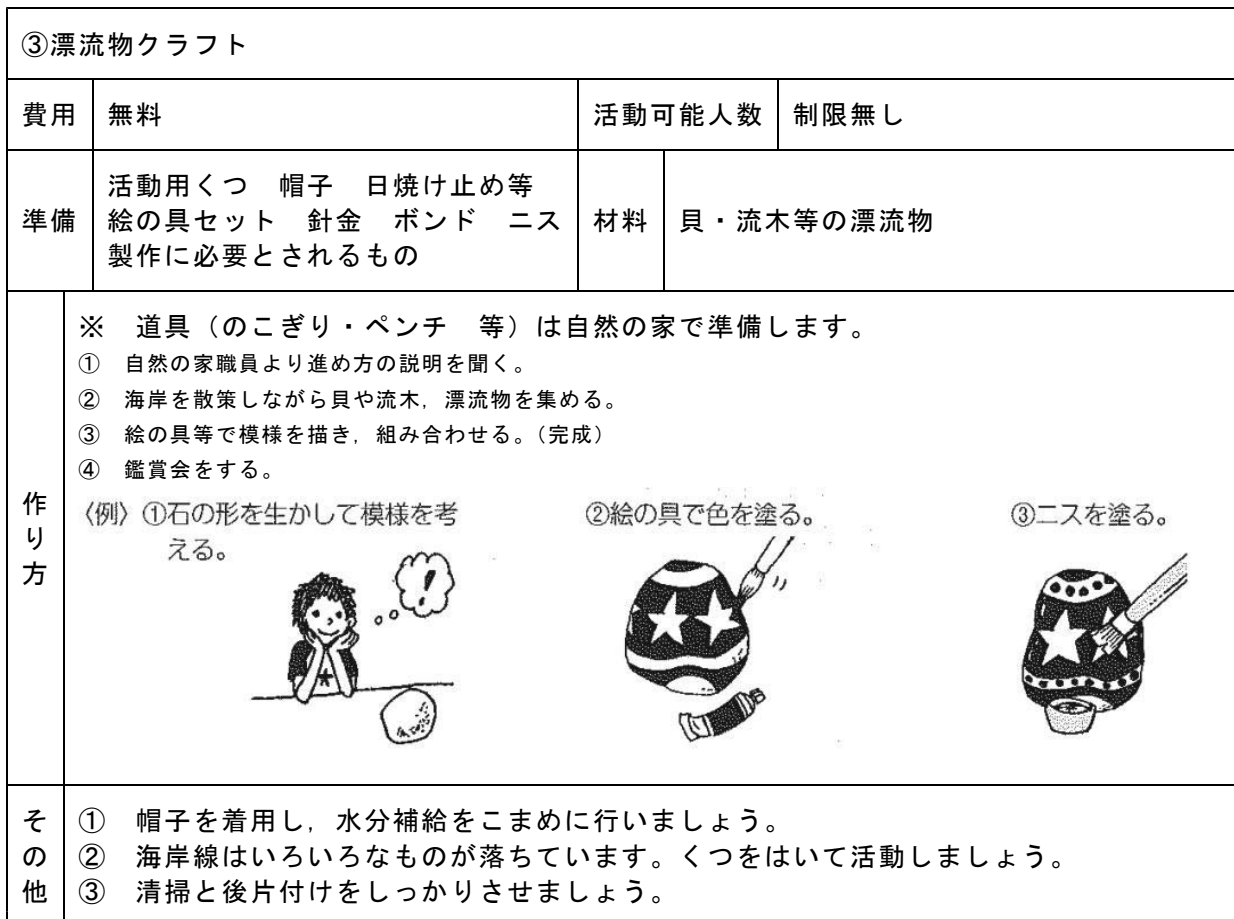 ③漂流物クラフト
費用 無料 活動可能人数 制限無し
準備
活動用くつ　帽子　日焼け止め等
絵の具セット　針金　ボンド　ニス
製作に必要とされるもの
材料 貝・流木等の漂流物
作り方
※　道具（のこぎり・ペンチ　等）は自然の家で準備します。
①　自然の家職員より進め方の説明を聞く。
②　海岸を散策しながら貝や流木，漂流物を集める。
③　絵の具等で模様を描き，組み合わせる。（完成）
④　鑑賞会をする。
〈例〉①石の形を生かして模様を考
える。
②絵の具で色を塗る。
③ニスを塗る。
その他
①　帽子を着用し，水分補給をこまめに行いましょう。
②　海岸線はいろいろなものが落ちています。くつをはいて活動しましょう。
③　清掃と後片付けをしっかりさせましょう。